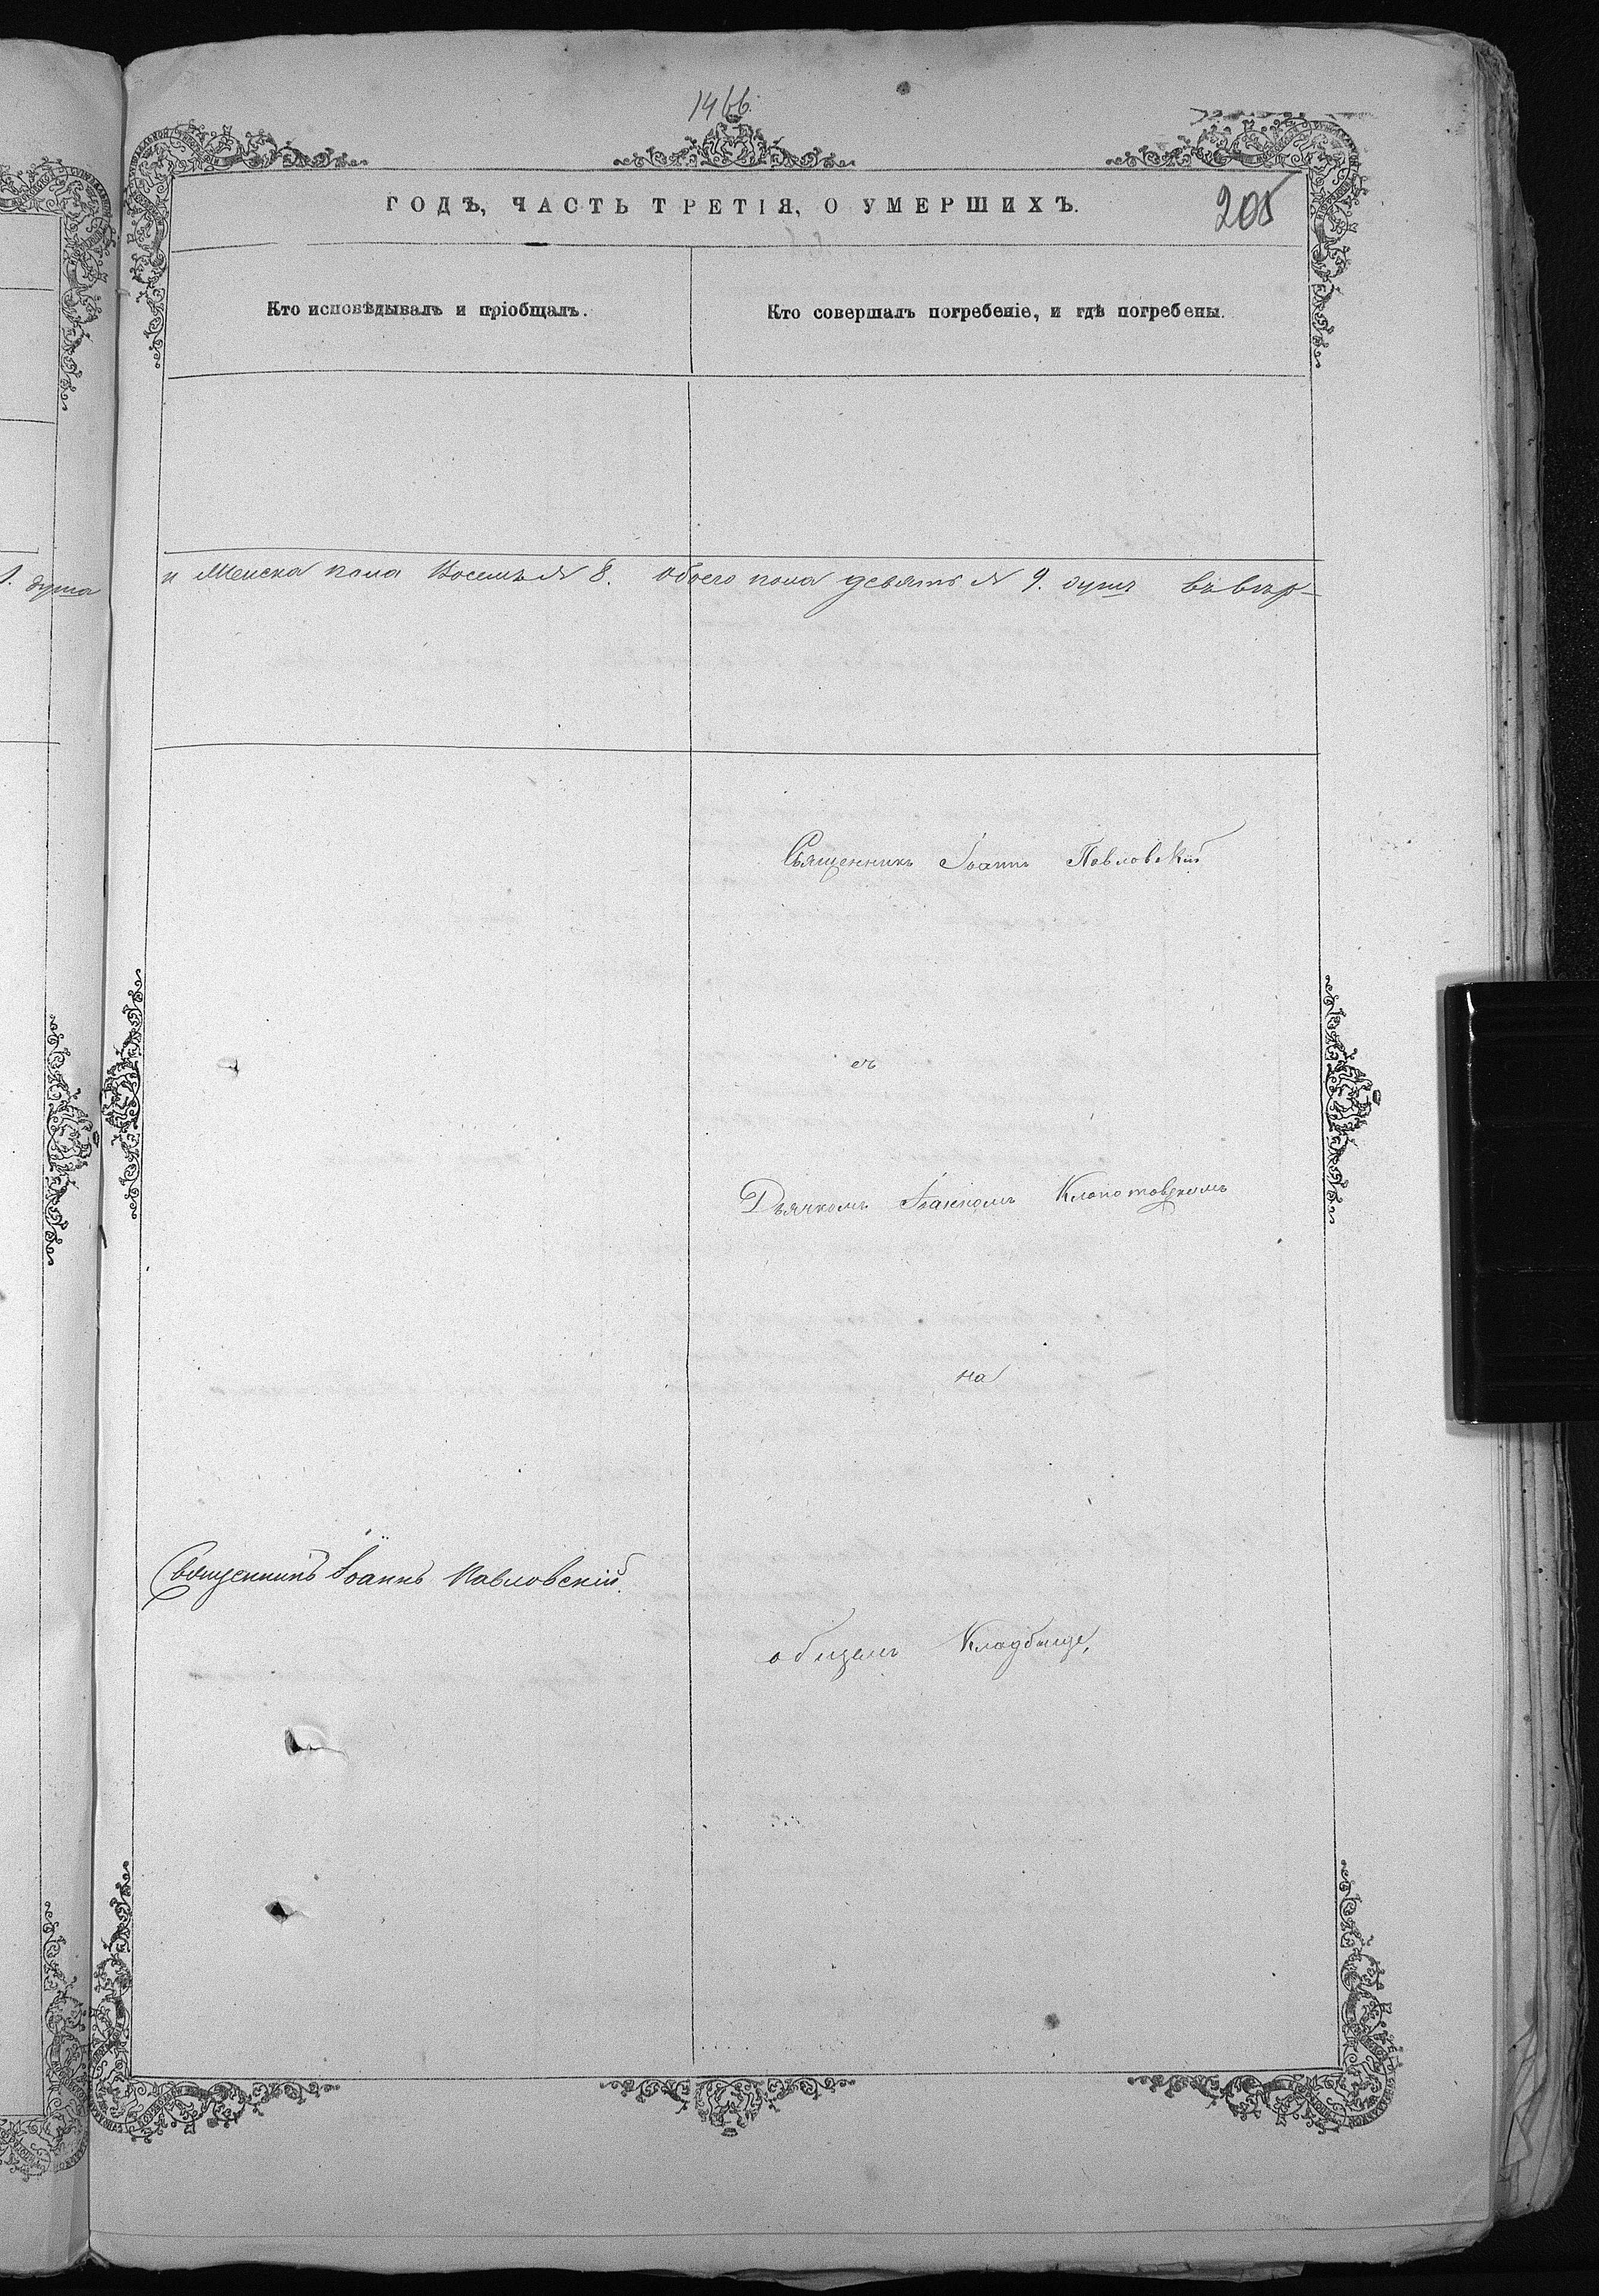 1466.
ГОДЪ, ЧАСТЬ ТРЕТІЯ, О УМЕРШИХЪ.
205
Кто исповѣдывалъ и пріобщалъ.
Кто совершалъ погребеніе, и гдѣ погребены.
1. душа
и Женска пола Восемь № 8. Обоего пола девять № 9. душъ
Священникъ Іоаннъ Павловскій
съ
Дьячкомъ Іоанномъ Клопотовскимъ
на
Священникъ Іоаннъ Павловскій.
общемъ Кладбище,